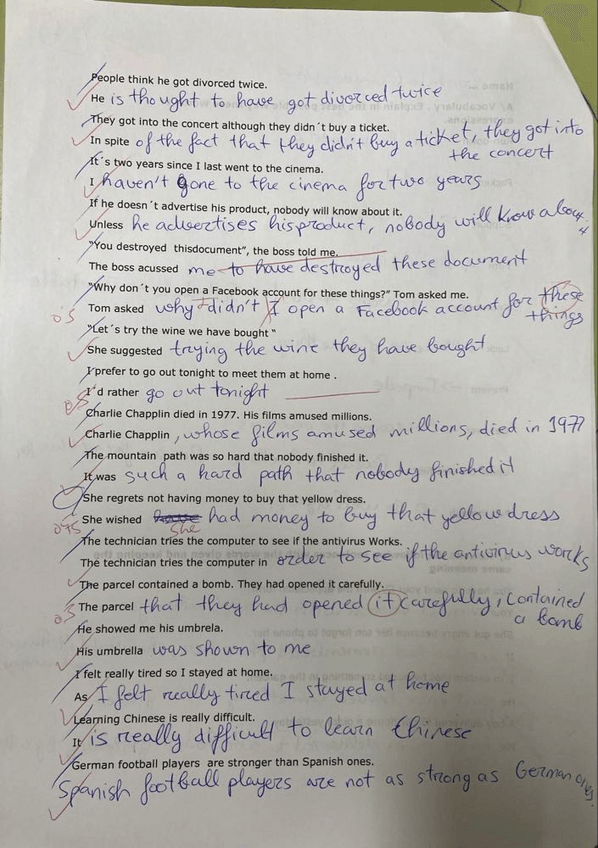 People think he got divorced twice.
He is thought to have got divorced twice
They got into the concert although they didn´t buy a ticket.
In spite of the fact that they didn't buy a ticket, they got into
the concert
It´s two years since I last went to the cinema.
I haven't gone to the cinema for two years
If he doesn´t advertise his product, nobody will know about it.
Unless he advertises his product, nobody will know about
it
"You destroyed thisdocument", the boss told me.
The boss acussed me to have destroyed these document
"Why don´t you open a Facebook account for these things?" Tom asked me.
0'5 Tom asked why didn't I open a Facebook account for these
things
"Let´s try the wine we have bought "
She suggested trying the wine they have bought
I prefer to go out tonight to meet them at home .
0'5 I'd rather go out tonight
Charlie Chapplin died in 1977. His films amused millions.
Charlie Chapplin , whose films amused millions, died in 1977
The mountain path was so hard that nobody finished it.
It was such a hard path that nobody finished it
She regrets not having money to buy that yellow dress.
She wished she had money to buy that yellow dress
The technician tries the computer to see if the antivirus Works.
The technician tries the computer in order to see if the antivirus works
The parcel contained a bomb. They had opened it carefully.
0'5 The parcel that they had opened it carefully, contained
a bomb
He showed me his umbrela.
His umbrella was shown to me
I felt really tired so I stayed at home.
As I felt really tired I stayed at home
Learning Chinese is really difficult.
It is really difficult to learn Chinese
German football players are stronger than Spanish ones.
Spanish football players are not as strong as German ones.